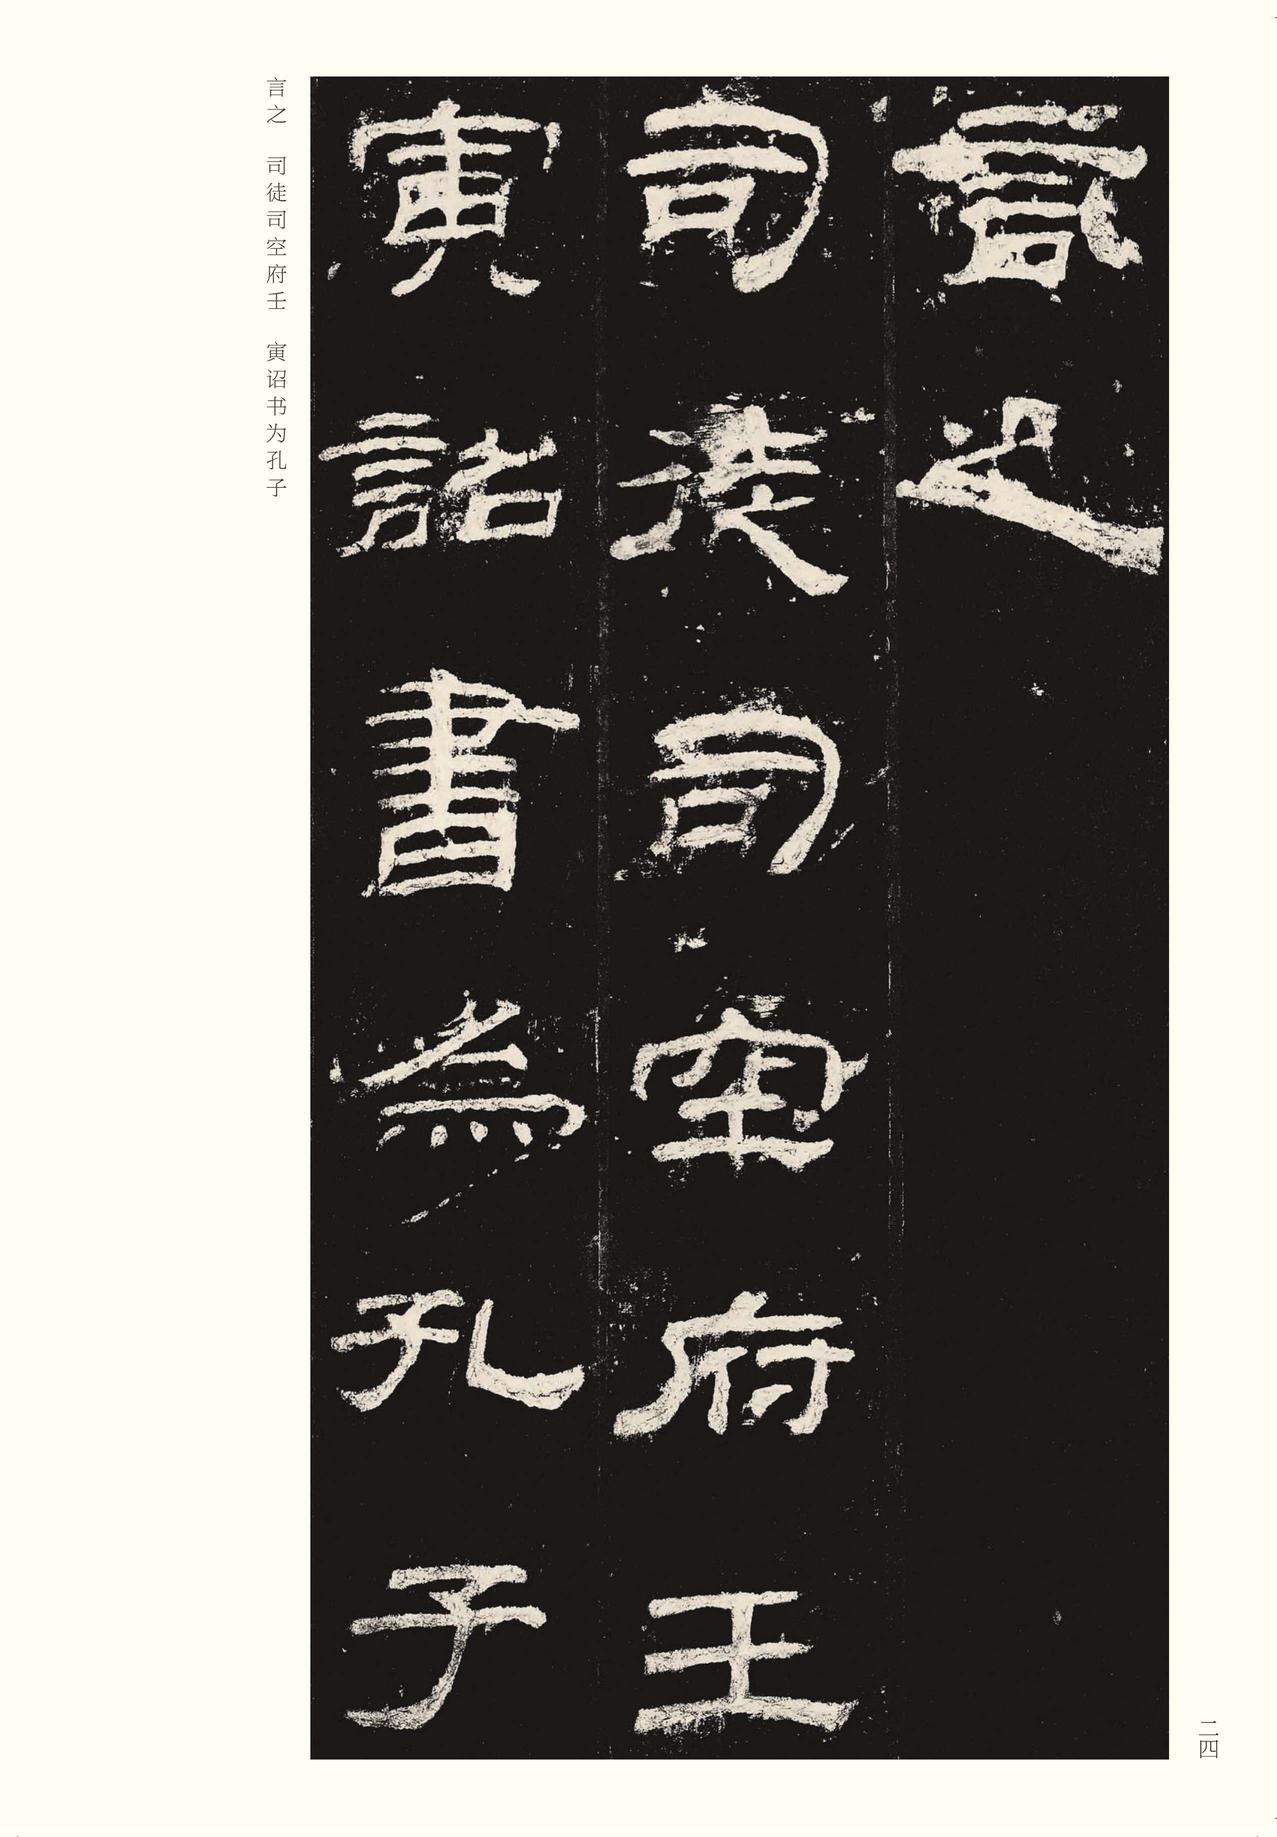 言之
司徒司空府壬
寅詔書為孔子
言之　司徒司空府壬　寅诏书为孔子
二四